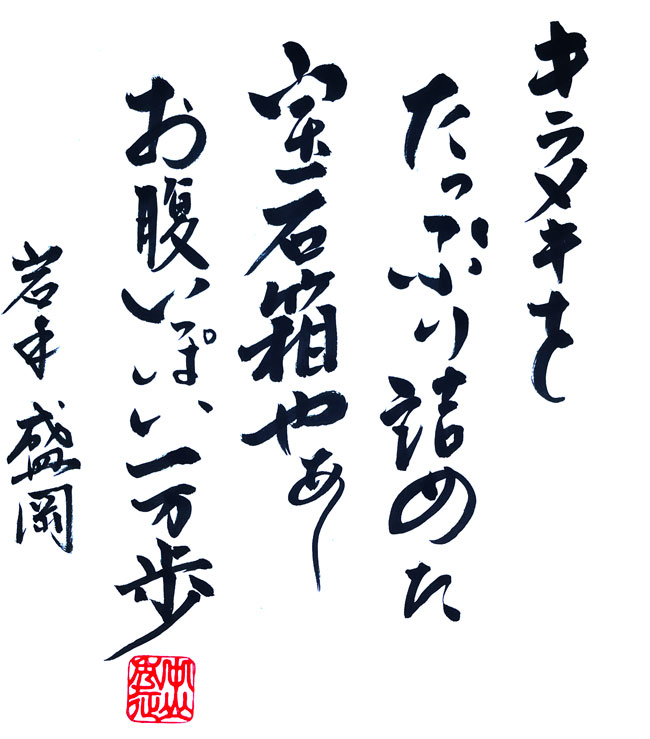 キラメキを
たっぷり詰めた
宝石箱やぁー
お腹いっぱい一万歩
岩手 盛岡